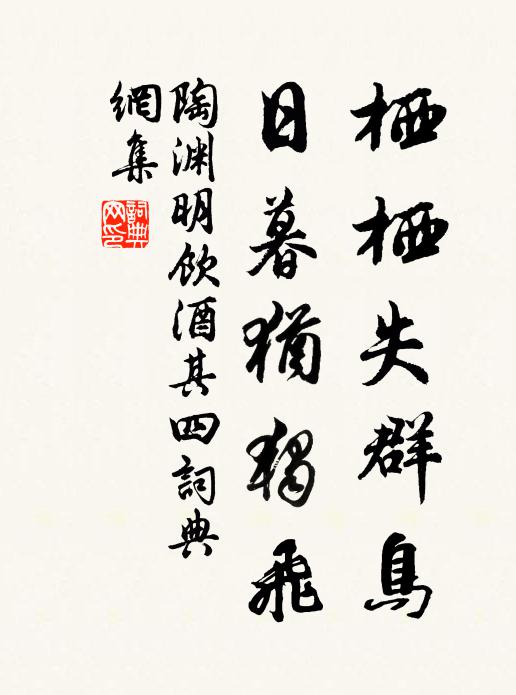 栖栖失群鳥
日暮猶獨飛
陶渊明飲酒其四詞典
網集
詞典
网印